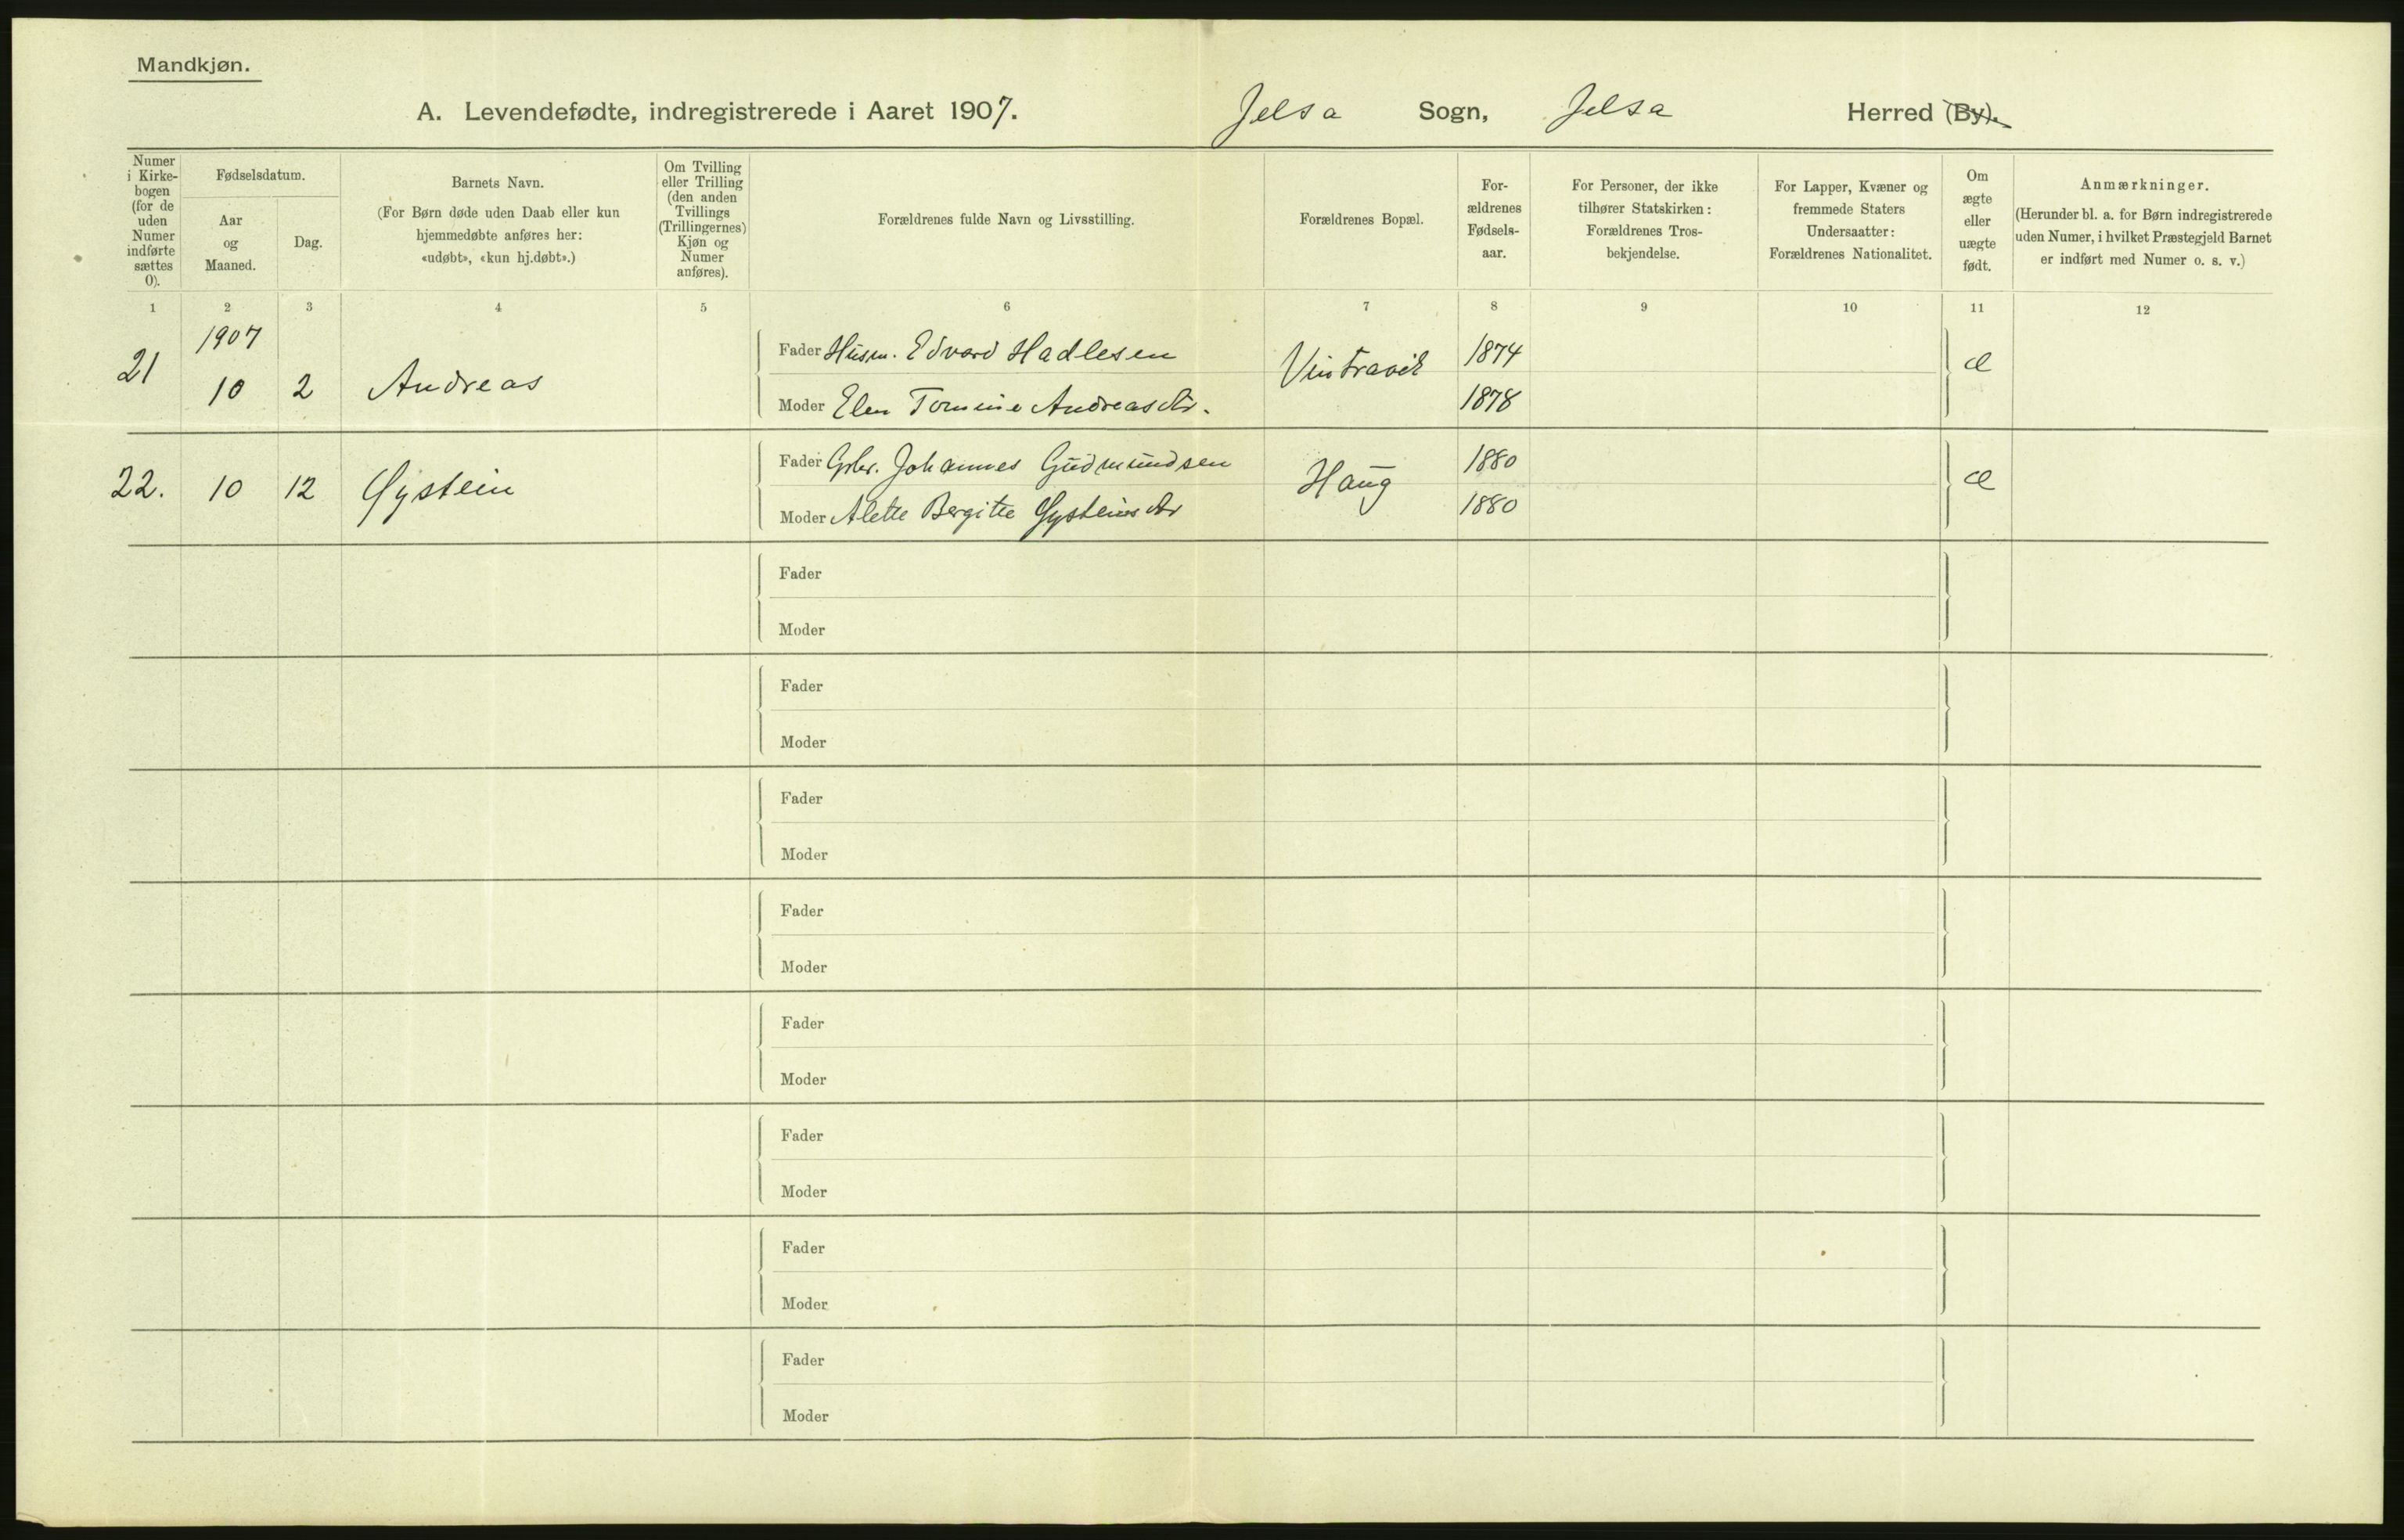 Mandkjøn.
A. Levendefødte, indregistrerede i Aaret 1907. Jelsa Sogn, Jelsa Herred (By).
Numer i Kirke-bogen (for de uden Numer indførte sættes 0).
Fødselsdatum.
Aar og Maaned.
Dag.
Barnets Navn.
(For Børn døde uden Daab eller kun
hjemmedøbte anføres her:
«udøbt», «kun hj.døbt».)
Om Tvilling
eller Trilling
(den anden
Tvillings
(Trillingernes)
Kjøn og
Numer
anføres).
Forældrenes fulde Navn og Livsstilling.
Forældrenes Bopæl.
For-
ældrenes
Fødsels-
aar.
For Personer, der ikke
tilhører Statskirken:
Forældrenes Tros-
bekjendelse.
For Lapper, Kvæner og
fremmede Staters
Undersaatter:
Forældrenes Nationalitet.
Om
ægte
eller
uægte
født.
Anmærkninger.
(Herunder bl. a. for Børn indregistrerede
uden Numer, i hvilket Præstegjeld Barnet
er indført med Numer o. s. v.)
1 2 3 4 5 6 7 8 9 10 11 12
1907
21 10 2 Andreas
Fader Husm. Edvard Hadlesen Vintravik 1874 æ
Moder Elen Tomine Andreasdtr. 1878
22. 10 12 Øystein
Fader Gbr. Johannes Gudmundsen Haug 1880 æ
Moder Alette Bergitte Øysteinsdtr 1880
Fader
Moder
Fader
Moder
Fader
Moder
Fader
Moder
Fader
Moder
Fader
Moder
Fader
Moder
Fader
Moder